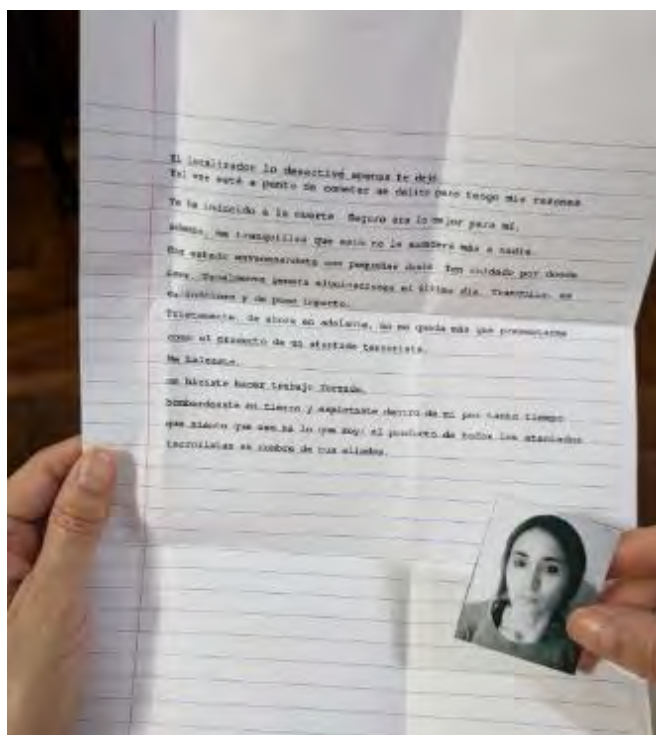 El localizador lo desactivé apenas te dejé.
Tal vez esté a punto de cometer un delito pero tengo mis razones
Te he inducido a la muerte. Seguro era lo mejor para mí.
Además, me tranquiliza que esto no le suceda más a nadie.
He estado envenenándote con pequeñas dosis. Ten cuidado por donde
alucinaciones el último día. Tranquilo, es
indoloro y de poco impacto.
Tristemente, de ahora en adelante, no me queda más que presentarme
como el producto de un atentado terrorista.
Me
me hiciste hacer trabajo forzado,
bombardeaste mi tierra y explotaste dentro de mí por tanto tiempo
que siento que eso es lo que soy: el producto de todos los atentados
terroristas en nombre de tus aliados.